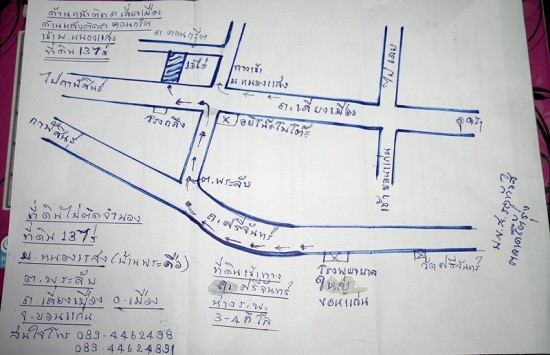 ด้านหน้าติดถ.เลี่ยงเมือง
ด้านหลังติดถ.คอนกรีต
เข้า บ.หนองแสง
ที่ดิน 13ไร่
ถ.คอนกรีต
13ไร่
ทางเข้า
บ.หนองแสง
ไปกาฬสินธุ์
ถ.เลี่ยงเมือง
ไปเลย
อุดร
เข้าขอนแก่น
กาฬสินธุ์
ต.พระลับ
ถ.ศรีจันทร์
โรงพยาบาล
ขอนแก่น
วัดศรีจันทร์
ที่ดินไม่ติดจำนอง
ที่ดิน 13ไร่
บ.หนองแสง(บ้านพระคือ)
ต.พระลับ
ถ.เลี่ยงเมือง อ.เมือง
จ.ขอนแก่น
สนใจโทร 089-4462498
089-4462489
ที่ดินเข้าทาง
ถ.ศรีจันทร์
ห่าง ร.พ.
3-4 กิโล